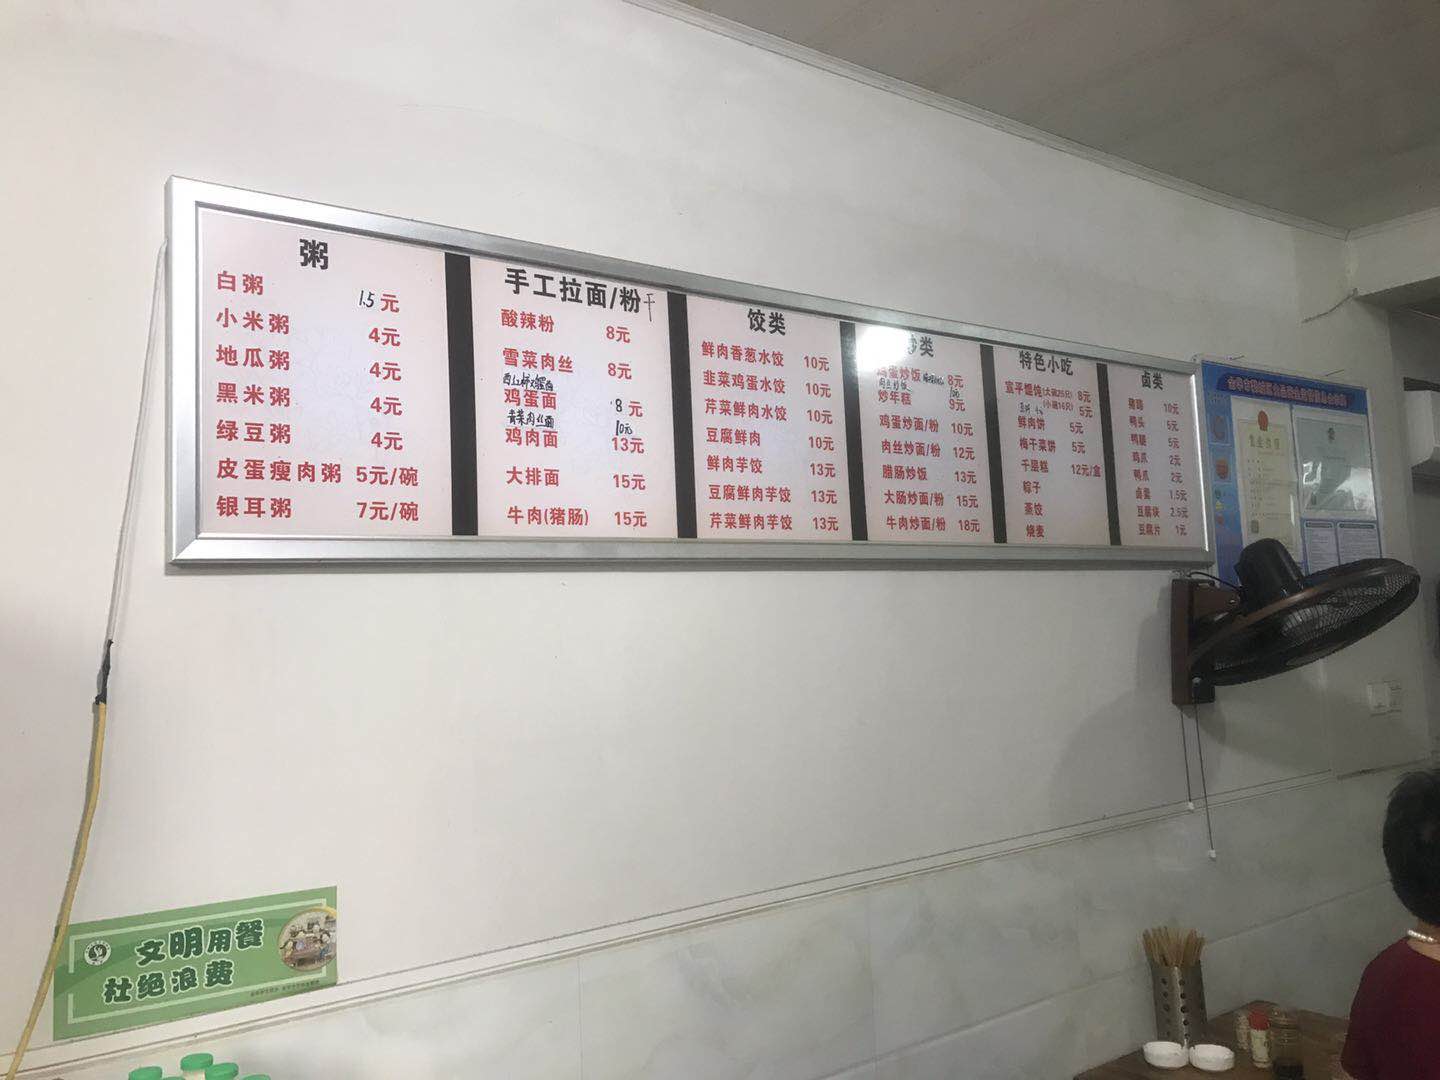 粥
白粥 1.5元
小米粥 4元
地瓜粥 4元
黑米粥 4元
绿豆粥 4元
皮蛋瘦肉粥 5元/碗
银耳粥 7元/碗
手工拉面/粉干
酸辣粉 8元
雪菜肉丝 8元
西红柿鸡蛋面
鸡蛋面 8元
青菜肉丝面 10元
鸡肉面 13元
大排面 15元
牛肉(猪肠) 15元
饺类
鲜肉香葱水饺 10元
韭菜鸡蛋水饺 10元
芹菜鲜肉水饺 10元
豆腐鲜肉 10元
鲜肉芋饺 13元
豆腐鲜肉芋饺 13元
芹菜鲜肉芋饺 13元
炒类
鸡蛋炒饭 8元
肉丝炒饭 10元
炒年糕 9元
鸡蛋炒面/粉 10元
肉丝炒面/粉 12元
腊肠炒饭 13元
大肠炒面/粉 15元
牛肉炒面/粉 18元
特色小吃
宣平馄饨(大碗25只) 8元
(小碗16只) 5元
鲜肉饼 5元
梅干菜饼 5元
千层糕 12元/盒
粽子
蒸饺
烧麦
卤类
猪蹄 10元
鸭头 5元
鸭腿 5元
鸡爪 2元
鸭爪 2元
卤蛋 1.5元
豆腐块 2.5元
豆腐片 1元
营业执照
文明用餐
杜绝浪费